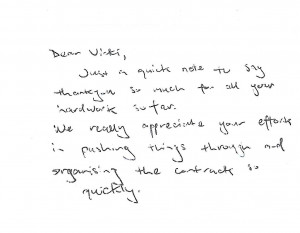 Dear Vicki,
Just a quick note to say
thankyou so much for all your
hardwork so far.
We really appreciate your efforts
in pushing things through and
organising the contracts so
quickly.